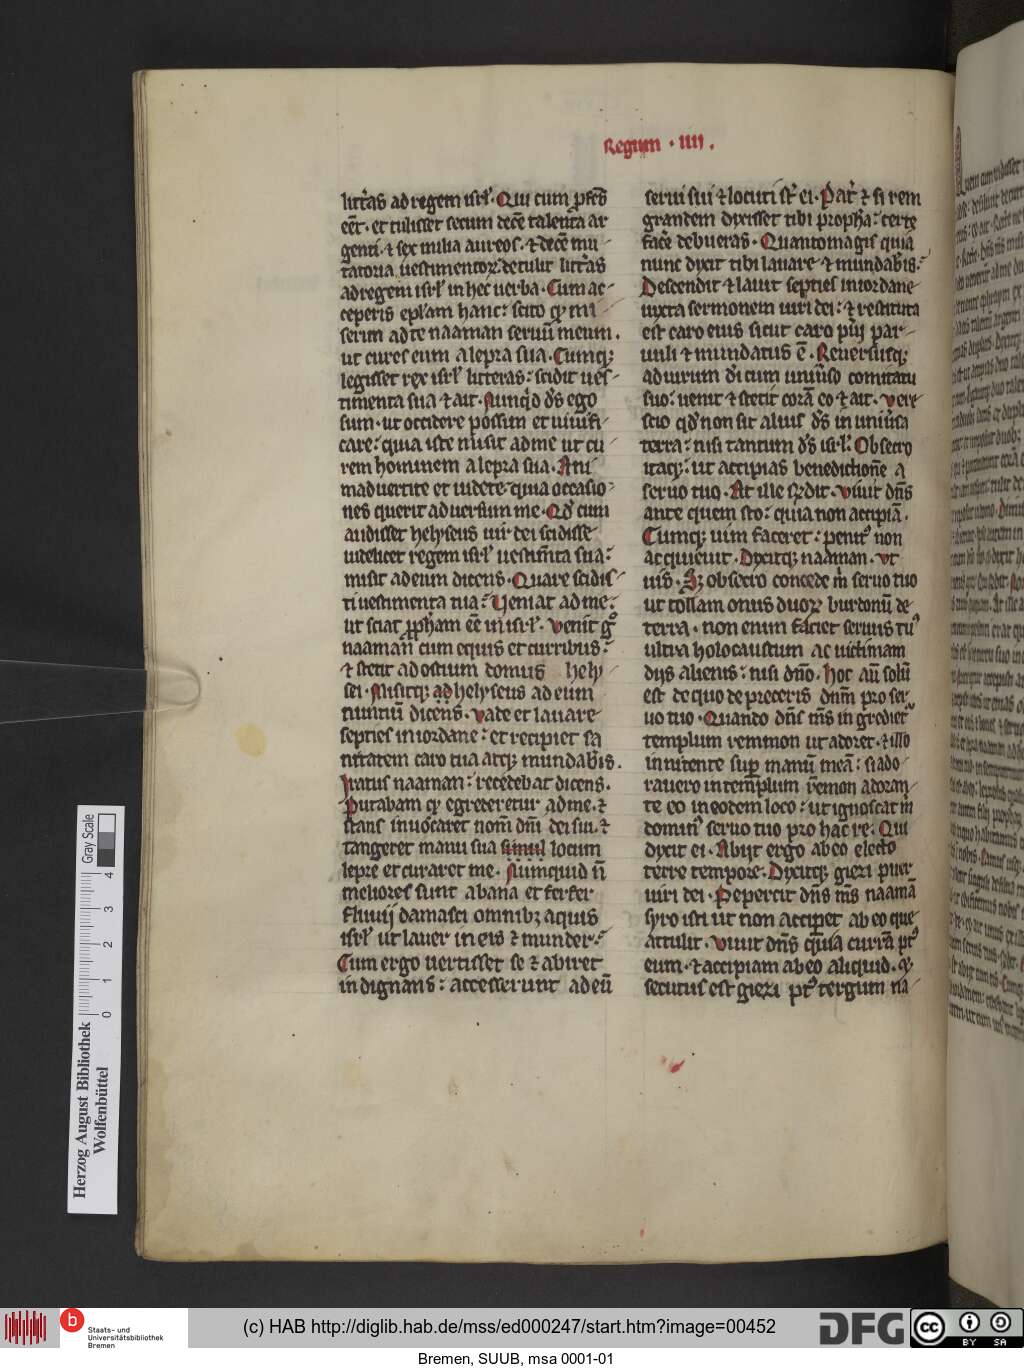 Regum · IIII ·
litt̄as ad regem isrl̄· Qui cum ꝓfc̄s
eēt· et tulisset secum decē talenta ar
genti· ⁊ sex milia aureos· ⁊ decē mu-
tatoria uestimentoꝝ· detulit litt̄as
ad regem isrl̄ in hec uerba· Cum ac-
ceperis epl̄am hanc: scito ꝙ mi-
serim ad te naaman seruū meum·
ut cures eum a lepra sua· Cumqꝫ
legisset rex isrl̄ litteras: scidit ues-
timenta sua ⁊ ait· Nunqͥd ds̄ ego
sum· ut occidere possim et uiuifi-
care: quia iste misit ad me ut cu-
rem hominem a lepra sua· Ani
maduertite et uidete· quia occasio-
nes querit aduersum me· Qd̄ cum
audisset helyseus uir dei scidisse
uidelicet regem isrl̄ uestim̄ta sua:
misit ad eum dicens· Quare scidis-
ti uestimenta tua: Ueniat ad me:
ut sciat ꝓpham eē in isrl̄· Venit gͦ
naaman cum equis et curribus:
⁊ stetit ad ostium domus hely-
sei· Misitqꝫ ad helyseus ad eum
nuntiū dicens· Vade et lauare
septies in iordane: et recipiet sa
nitatem caro tua atqꝫ mundab̄is·
Iratus naaman: recedebat dicens·
Putabam ꝙ egrederetur ad me· ⁊
stans inuocaret nom̄ dn̄i dei sui· ⁊
tangeret manu sua simul locum
lepre et curaret me· Numquid n̄
meliores sunt abana et ferfer
fluuij damasci omnibꝫ aquis
isrl̄ ut lauer in eis ⁊ munder:
Cum ergo uertisset se ⁊ abiret
indignans: accesserunt ad eū
serui sui ⁊ locuti st̄ ei· Pat̄ ⁊ si rem
grandem dixisset tibi propha: certe
fac̄e debueras· Quantomagis quia
nunc dixit tibi lauare ⁊ mundab̄is:
Descendit ⁊ lauit septies in iordane
iuxta sermonem uiri dei: ⁊ restituta
est caro eius sicut caro pūi par-
uuli ⁊ mundatus ē· Reuersusqꝫ
ad uirum di cum uniūso comitatu
suo: uenit ⁊ stetit corā eo ⁊ ait· Vere
scio qd̄ non sit alius ds̄ in uniūsa
terra: nisi tantum ds̄ isrl̄· Obsecro
itaqꝫ: ut accipias benedictionē a
seruo tuo· At ille rn̄dit· Viuit dn̄s
ante quem sto: quia non accipiā·
Cumqꝫ uim faceret: penitꝰ non
acquieuit· Dixitqꝫ naaman· Vt
uis· Sꝫ obsecro concede m̄ seruo tuo
ut tollam onus duoꝝ burdonū de-
terra· non enim faciet seruus tuꝰ
ultra holocaustum ac uictimam
diis alienis: nisi dn̄o· Hoc aū solū
est de quo depreceris dnm̄ pro ser-
uo tuo· Quando dn̄s ms̄ ingredietͬ
templum remmon ut adoret· ⁊ illo
innitente sup̄ manū meā: si ado-
rauero in templum rēmon adoran-
te eo in eodem loco: ut ignoscat m̄
dominꝰ seruo tuo pro hac re: Qui
dixit ei· Abijt ergo ab eo electo
terre tempore· Dixitqꝫ giezi puer
uiri dei· Pepercit dn̄s ms̄ naamā
syro isti ut non acciperet ab eo que
attulit· Viuit dn̄s quia currā ptꝰ
eum· ⁊ accipiam ab eo aliquid· ⁊
secutus est giezi ptꝰ tergum na-
Herzog August Bibliothek
Wolfenbüttel
Gray Scale
0 1 2 3 4
b Staats- und
Universitätsbibliothek
Bremen
(c) HAB http://diglib.hab.de/mss/ed000247/start.htm?image=00452
DFG
cc BY SA
Bremen, SUUB, msa 0001-01